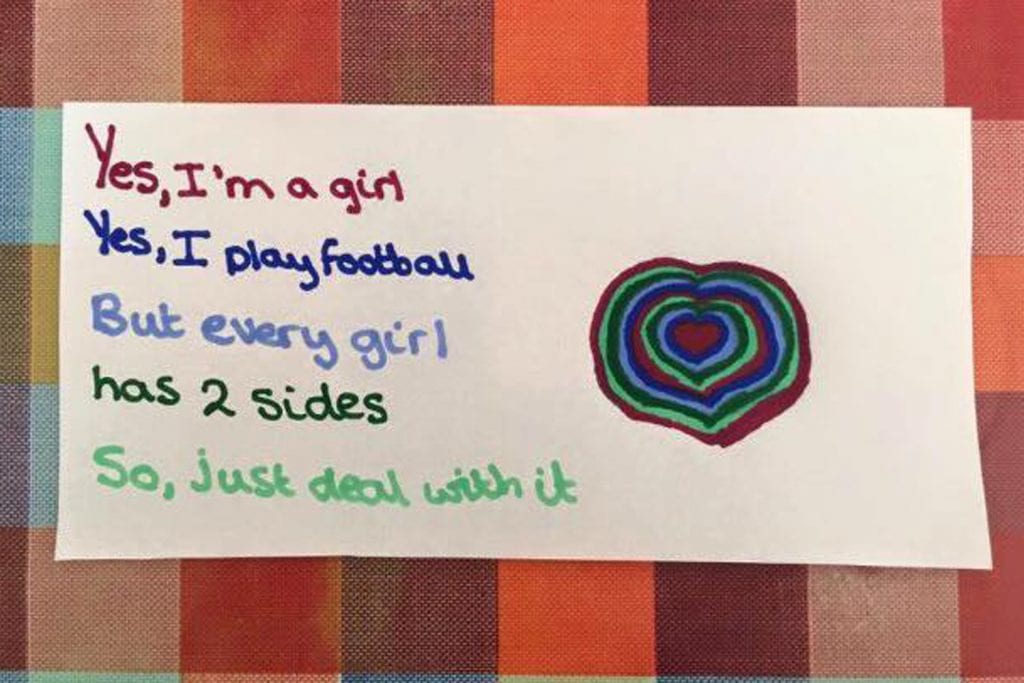 Yes, I'm a girl
Yes, I play football
But every girl
has 2 sides
So, just deal with it